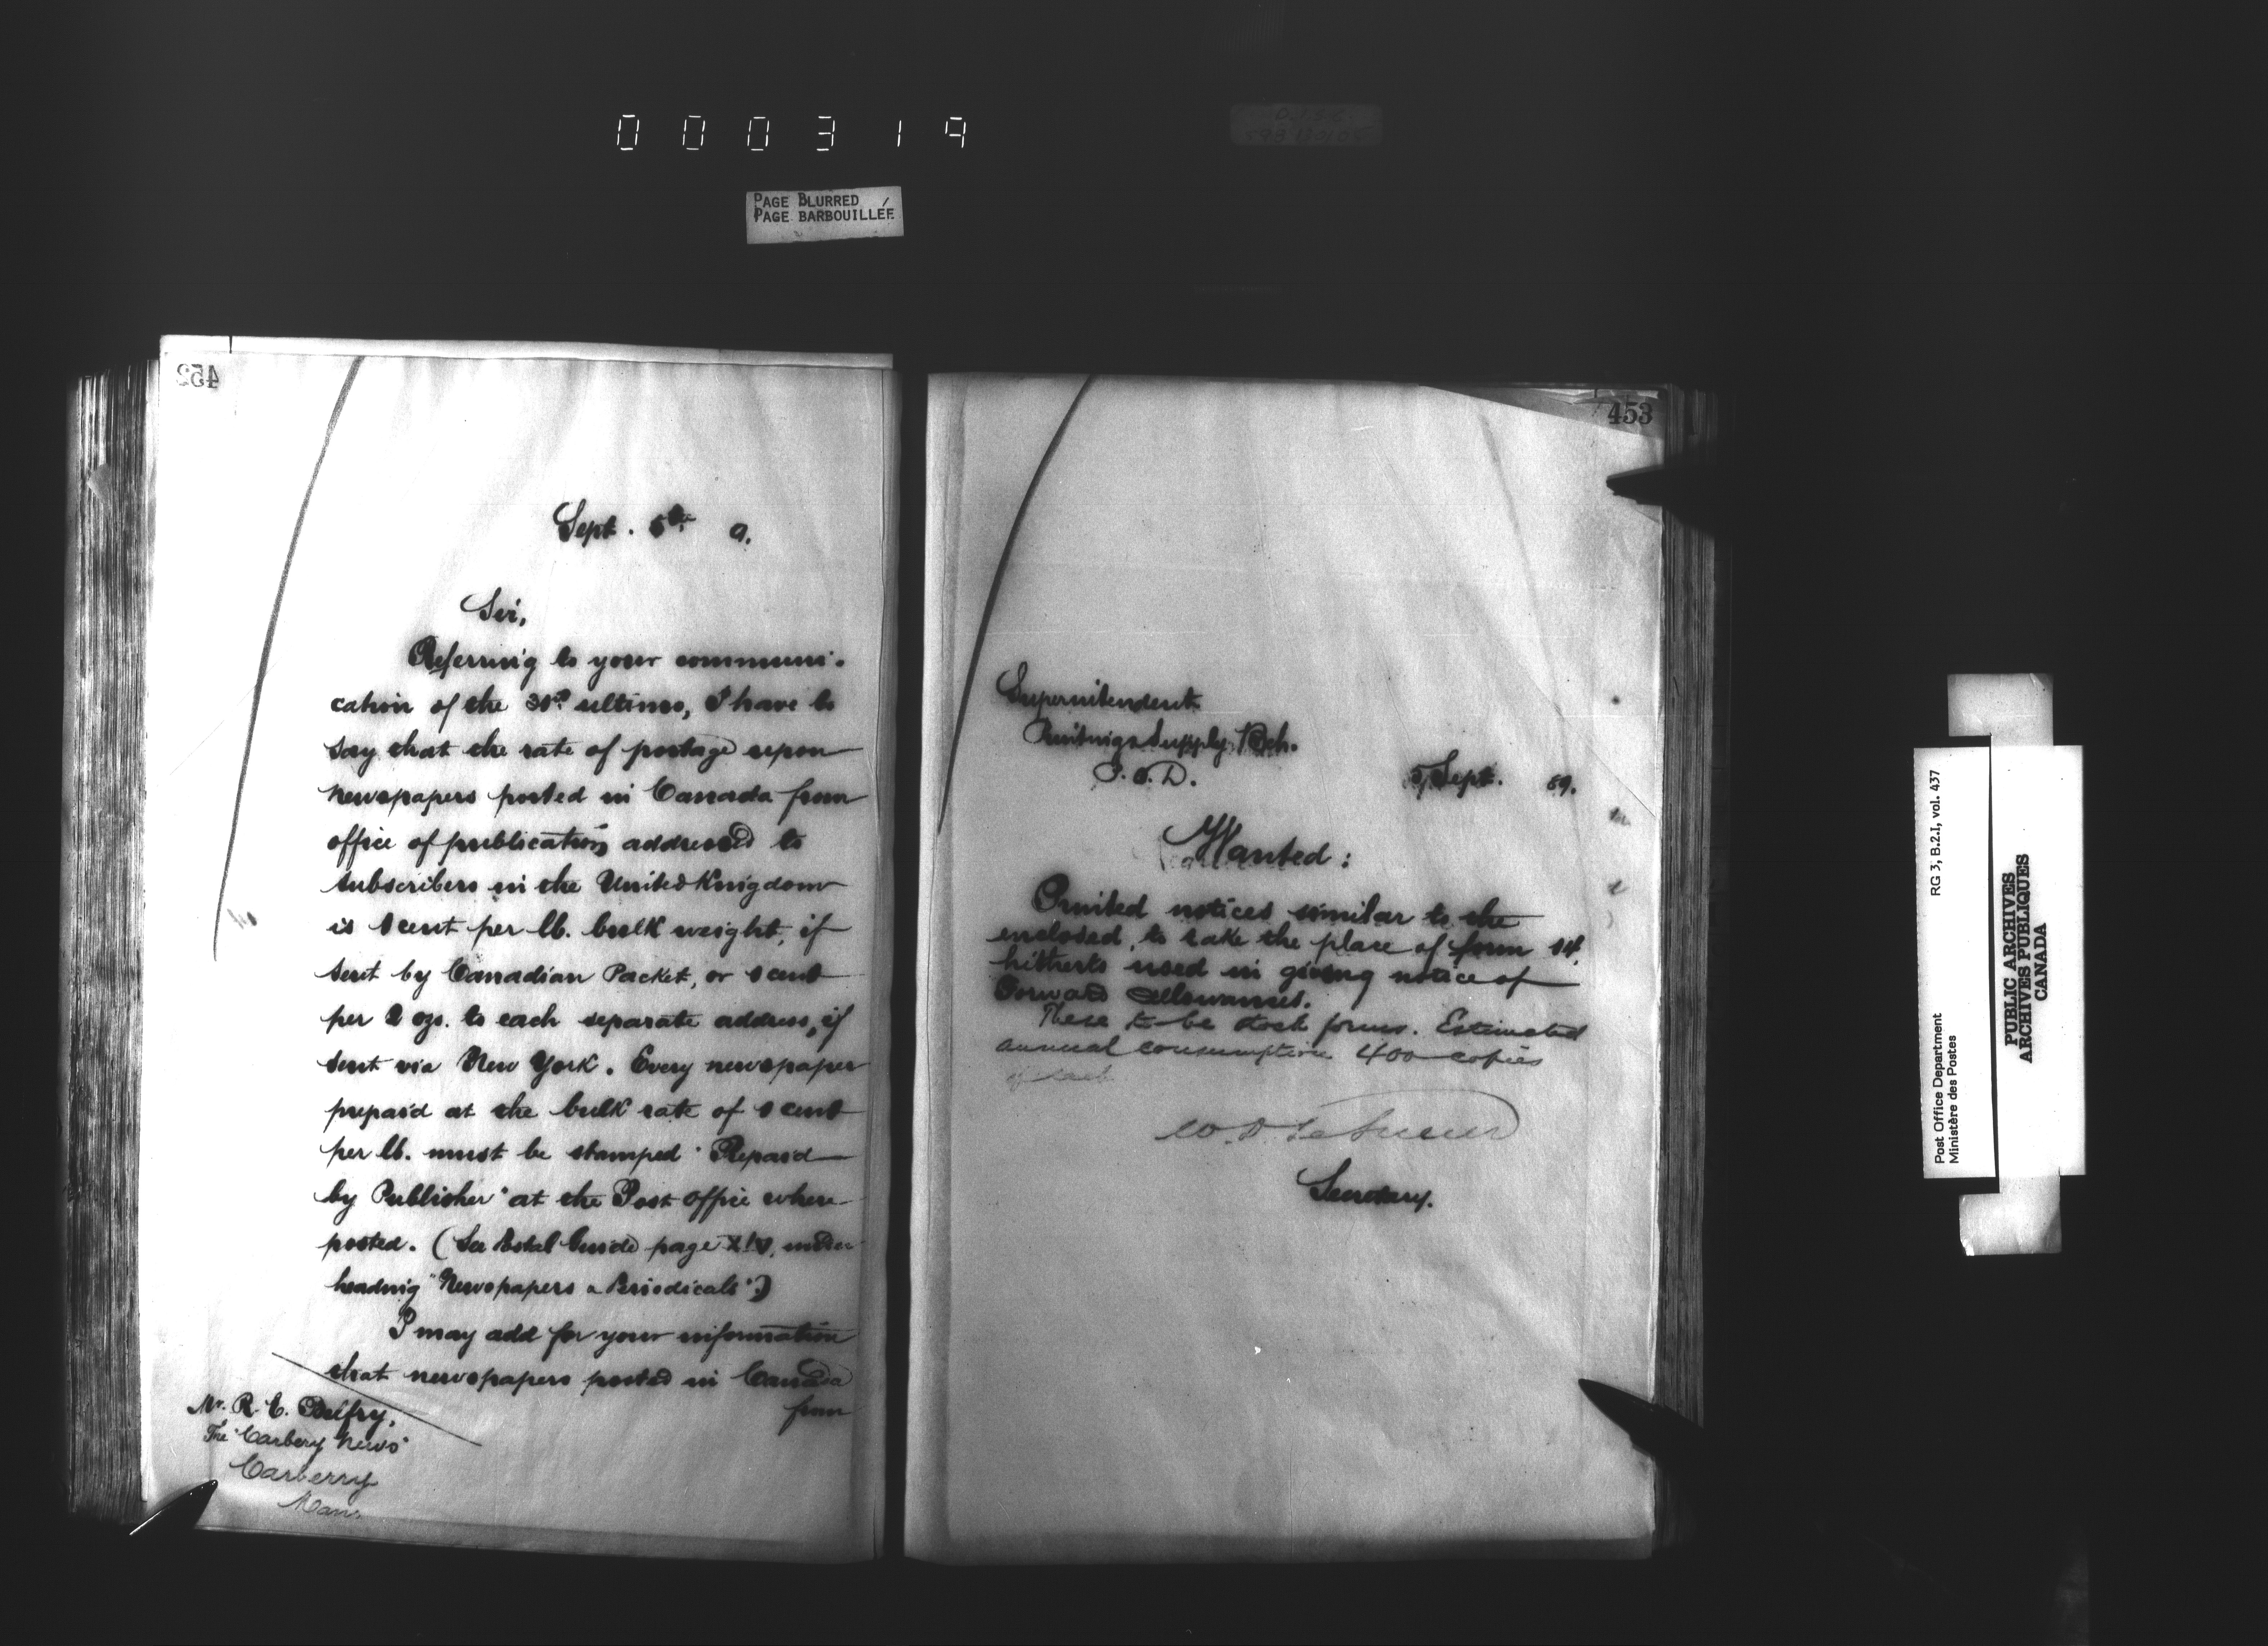 000319
PAGE BLURRED
PAGE BARBOUILLÉE
452
Sept. 5th 9.
Sir,
Referring to your communi-
cation of the ultimo, I have to
say that the rate of postage upon
newspapers posted in Canada from
office of publication, addressed to
subscribers in the United Kingdom
is 1 cent per lb. bulk weight, if
sent by Canadian Packet, or 1 cent
per 2 ozs. to each separate address, if
sent via New York. Every newspaper
prepaid at the bulk rate of 1 cent
per lb. must be stamped "Prepaid
by Publisher" at the Post Office where
posted. (See Postal Guide page XIV, under
heading "Newspapers & Periodicals".)
I may add for your information
that newspapers posted in Canada
from
Mr. R. E.
The "Carbery News"
Carberry
Man.
453
Superintendent
Printing & Supply Bch.
P.O.D.
5 Sept. 89.
Wanted:
Printed notices similar to the
enclosed, to take the place of form
hitherto used in giving notice of
Forward allowances.
These to be stock forms. Estimated
annual consumption 400 copies
of each
W. D. LeSueur
Secretary.
Post Office Department
Ministère des Postes
RG 3, B.2.I, vol. 437
PUBLIC ARCHIVES
ARCHIVES PUBLIQUES
CANADA